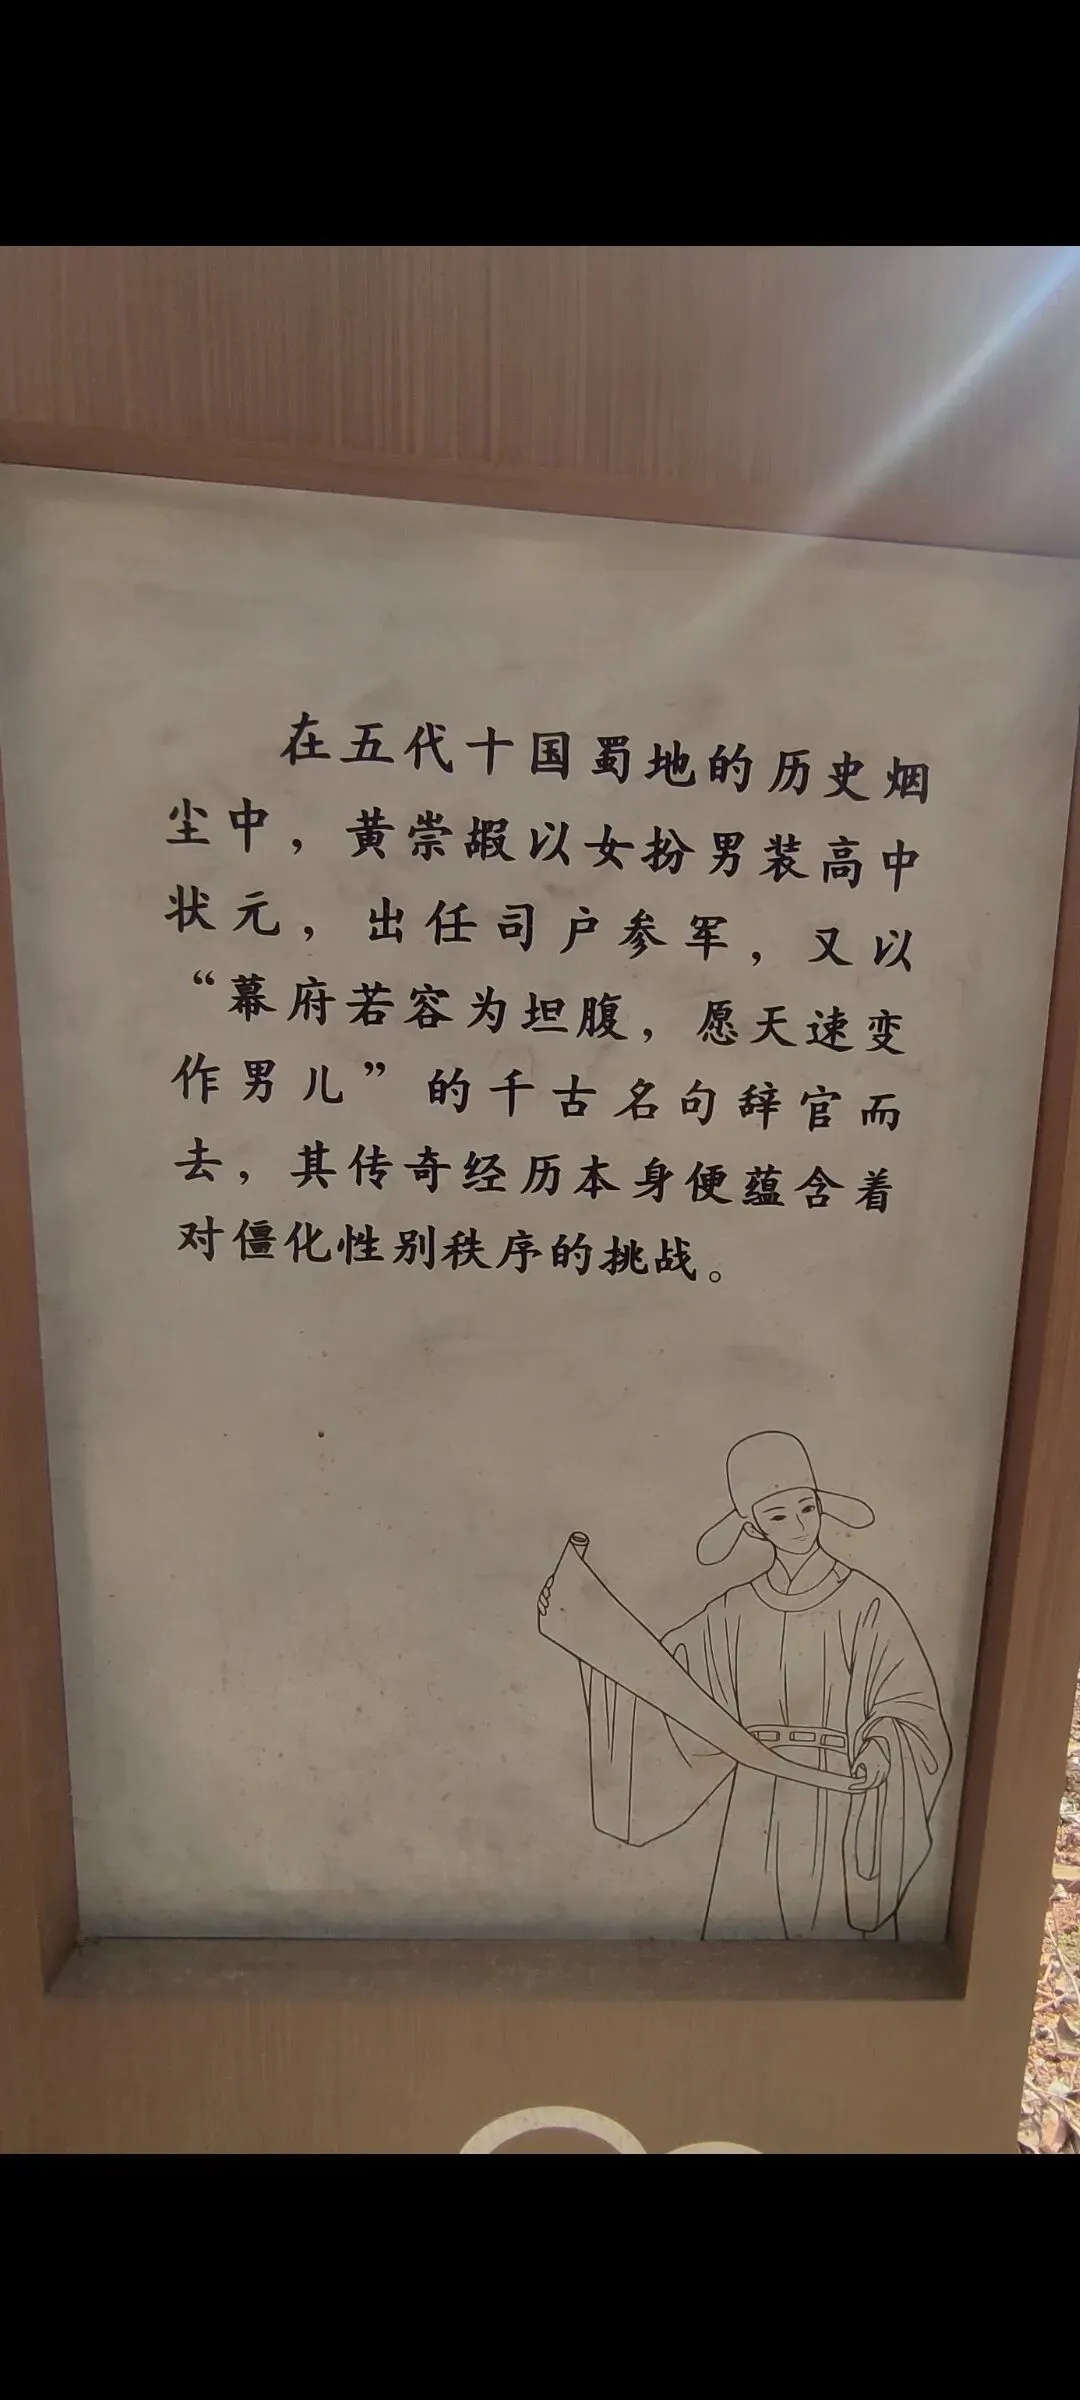 在五代十国蜀地的历史烟
尘中，黄崇嘏以女扮男装高中
状元，出任司户参军，又以
“幕府若容为坦腹，愿天速变
作男儿”的千古名句辞官而
去，其传奇经历本身便蕴含着
对僵化性别秩序的挑战。